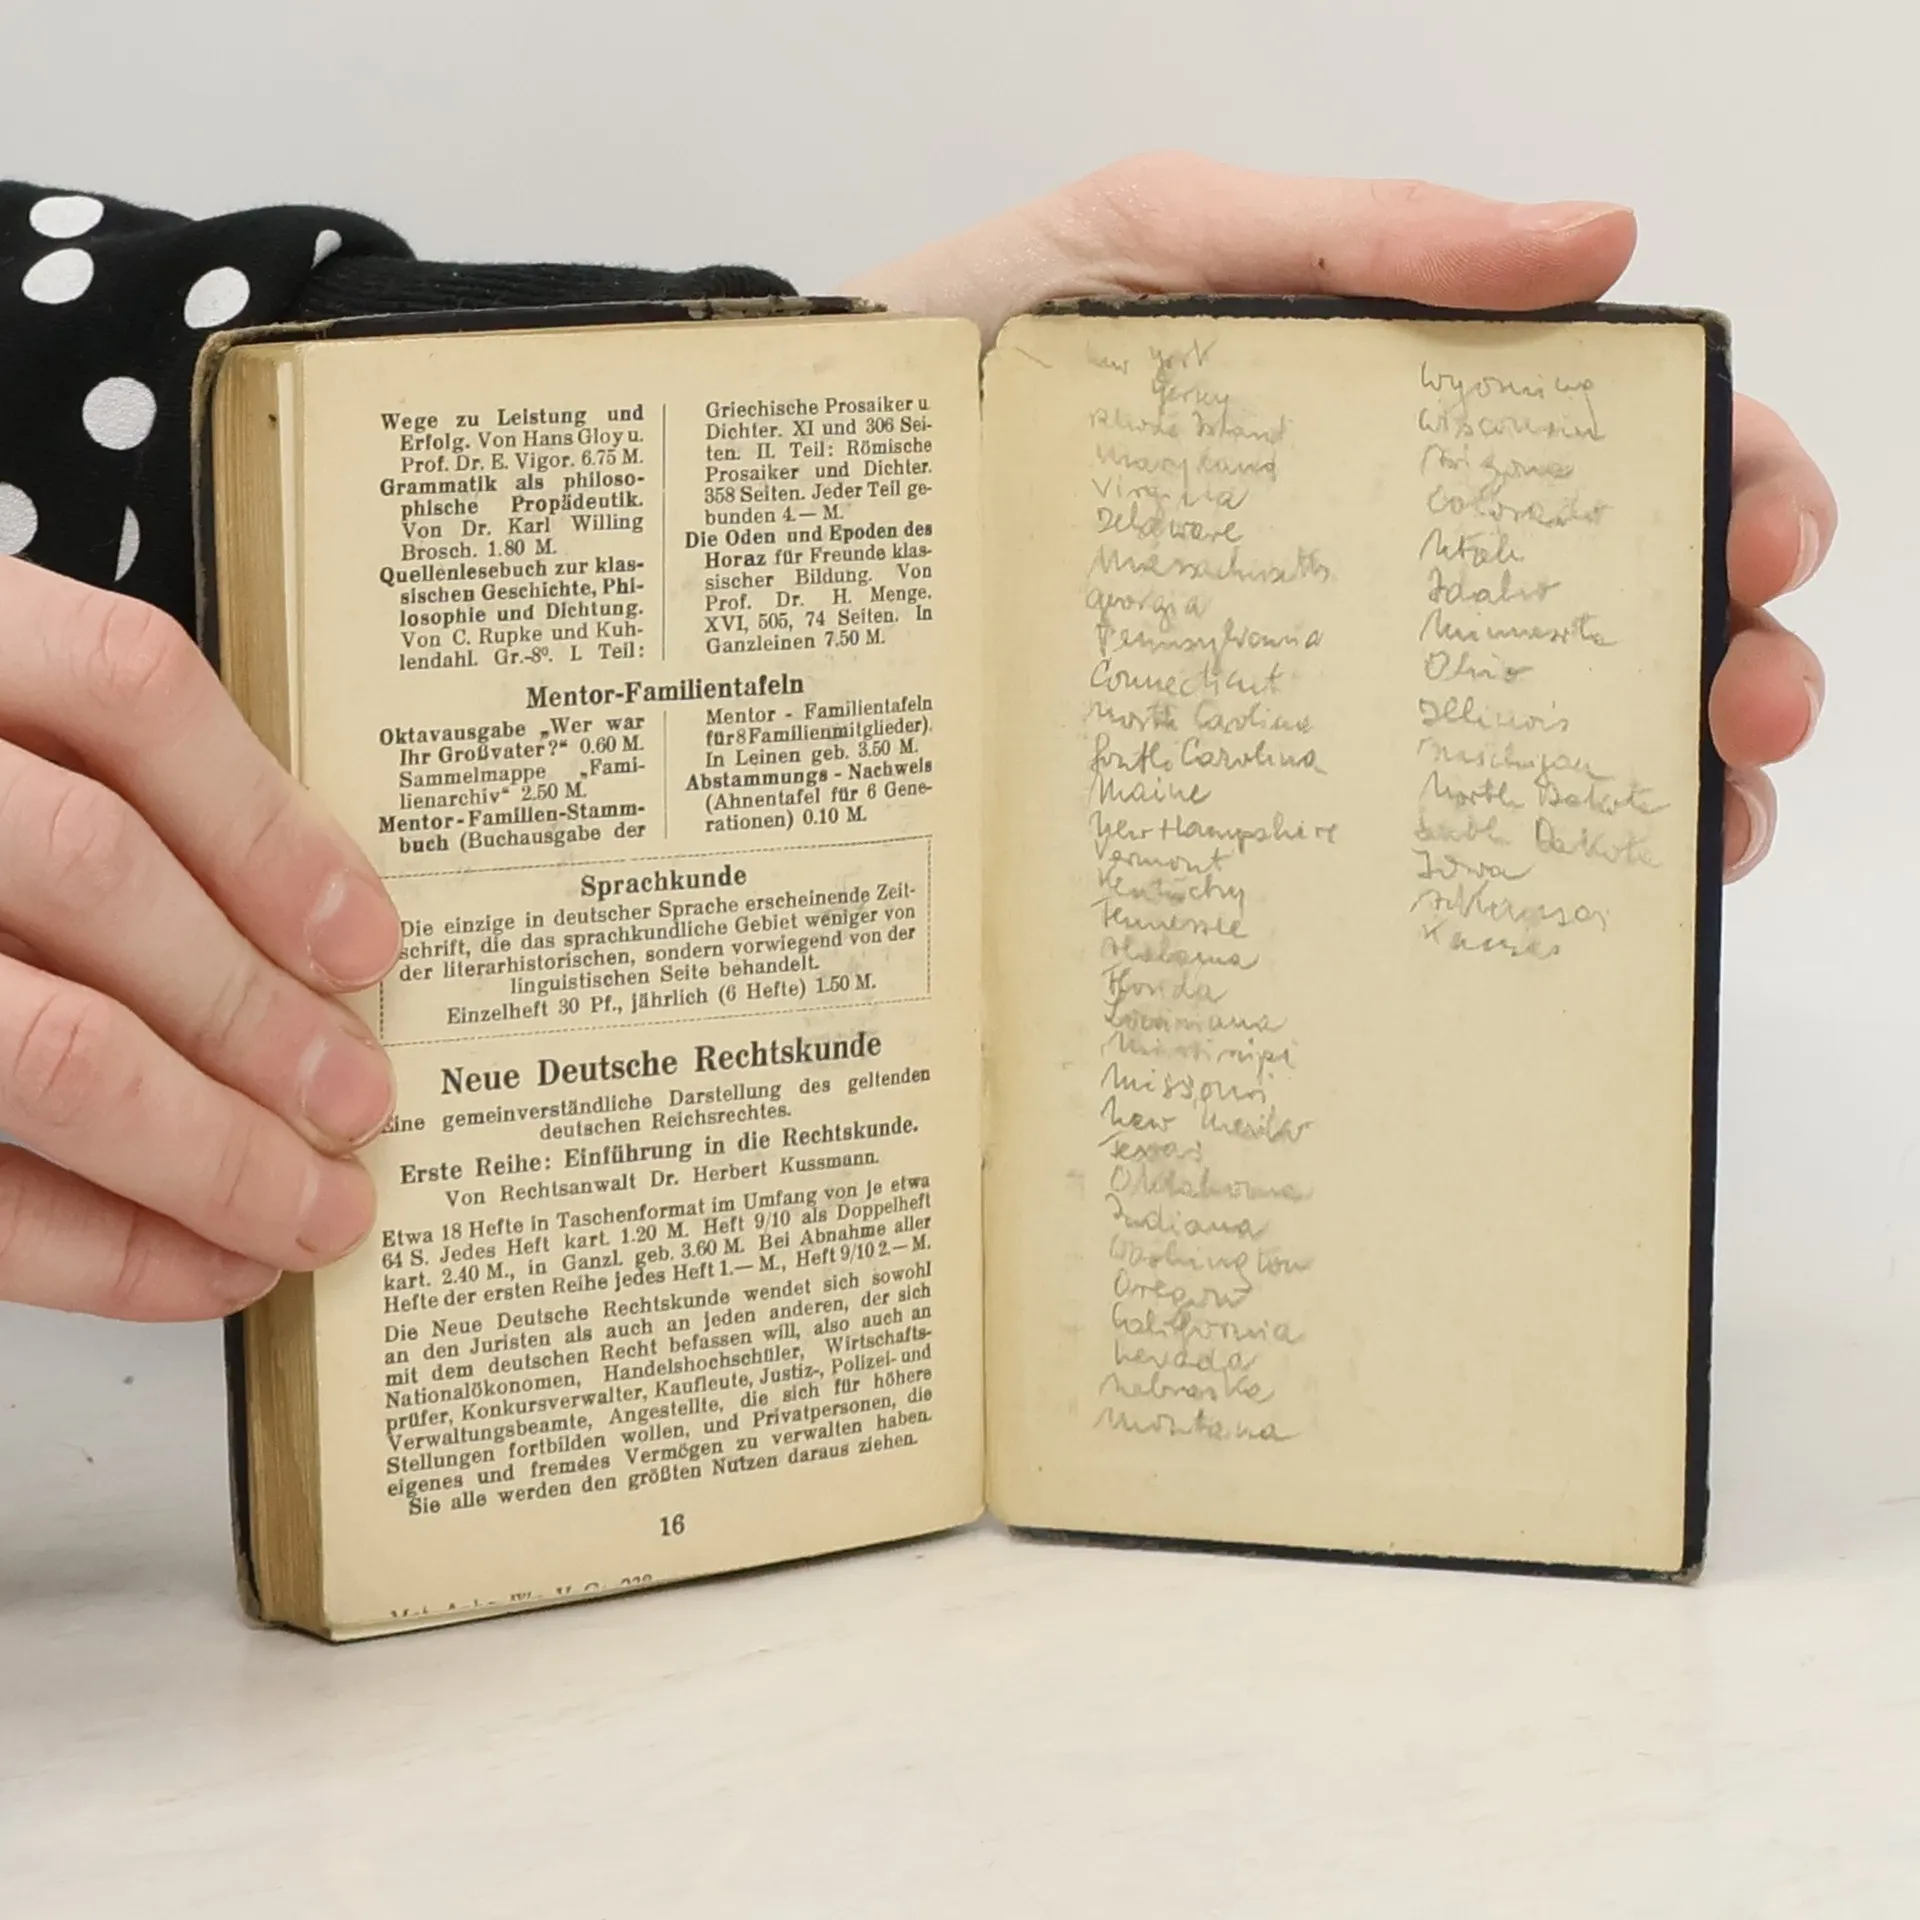 Wege zu Leistung und
Erfolg. Von Hans Gloy u.
Prof. Dr. E. Vigor. 6.75 M.
Grammatik als philoso-
phische Propädeutik.
Von Dr. Karl Willing
Brosch. 1.80 M.
Quellenlesebuch zur klas-
sischen Geschichte, Phi-
losophie und Dichtung.
Von C. Rupke und Kuh-
lendahl. Gr.-8º. I. Teil:
Griechische Prosaiker u
Dichter. XI und 306 Sei-
ten. II. Teil: Römische
Prosaiker und Dichter.
358 Seiten. Jeder Teil ge-
bunden 4.— M.
Die Oden und Epoden des
Horaz für Freunde klas-
sischer Bildung. Von
Prof. Dr. H. Menge.
XVI, 505, 74 Seiten. In
Ganzleinen 7.50 M.
Mentor-Familientafeln
Oktavausgabe „Wer war
Ihr Großvater?“ 0.60 M.
Sammelmappe „Fami-
lienarchiv“ 2.50 M.
Mentor-Familien-Stamm-
buch (Buchausgabe der
Mentor - Familientafeln
für 8 Familienmitglieder).
In Leinen geb. 3.50 M.
Abstammungs - Nachweis
(Ahnentafel für 6 Gene-
rationen) 0.10 M.
Sprachkunde
Die einzige in deutscher Sprache erscheinende Zeit-
schrift, die das sprachkundliche Gebiet weniger von
der literarhistorischen, sondern vorwiegend von der
linguistischen Seite behandelt.
Einzelheft 30 Pf., jährlich (6 Hefte) 1.50 M.
Neue Deutsche Rechtskunde
Eine gemeinverständliche Darstellung des geltenden
deutschen Reichsrechtes.
Erste Reihe: Einführung in die Rechtskunde.
Von Rechtsanwalt Dr. Herbert Kussmann.
Etwa 18 Hefte in Taschenformat im Umfang von je etwa
64 S. Jedes Heft kart. 1.20 M. Heft 9/10 als Doppelheft
kart. 2.40 M., in Ganzl. geb. 3.60 M. Bei Abnahme aller
Hefte der ersten Reihe jedes Heft 1.— M., Heft 9/10 2.— M.
Die Neue Deutsche Rechtskunde wendet sich sowohl
an den Juristen als auch an jeden anderen, der sich
mit dem deutschen Recht befassen will, also auch an
Nationalökonomen, Handelshochschüler, Wirtschafts-
prüfer, Konkursverwalter, Kaufleute, Justiz-, Polizei- und
Verwaltungsbeamte, Angestellte, die sich für höhere
Stellungen fortbilden wollen, und Privatpersonen, die
eigenes und fremdes Vermögen zu verwalten haben.
Sie alle werden den größten Nutzen daraus ziehen.
16
New York
Jersey
Rhode Island
Maryland
Virginia
Delaware
Massachusetts
Georgia
Pennsylvania
Connecticut
North Carolina
South Carolina
Maine
New Hampshire
Vermont
Kentucky
Tennessee
Alabama
Florida
Louisiana
Missisipi
Missouri
New Mexiko
Texas
Oklahoma
Indiana
Washington
Oregon
California
Nevada
Nebraska
Montana
Wyoming
Wisconsin
Arizona
Colorado
Utah
Idaho
Minnesota
Ohio
Illinois
Michigan
North Dakota
South Dakota
Iowa
Arkansas
Kansas